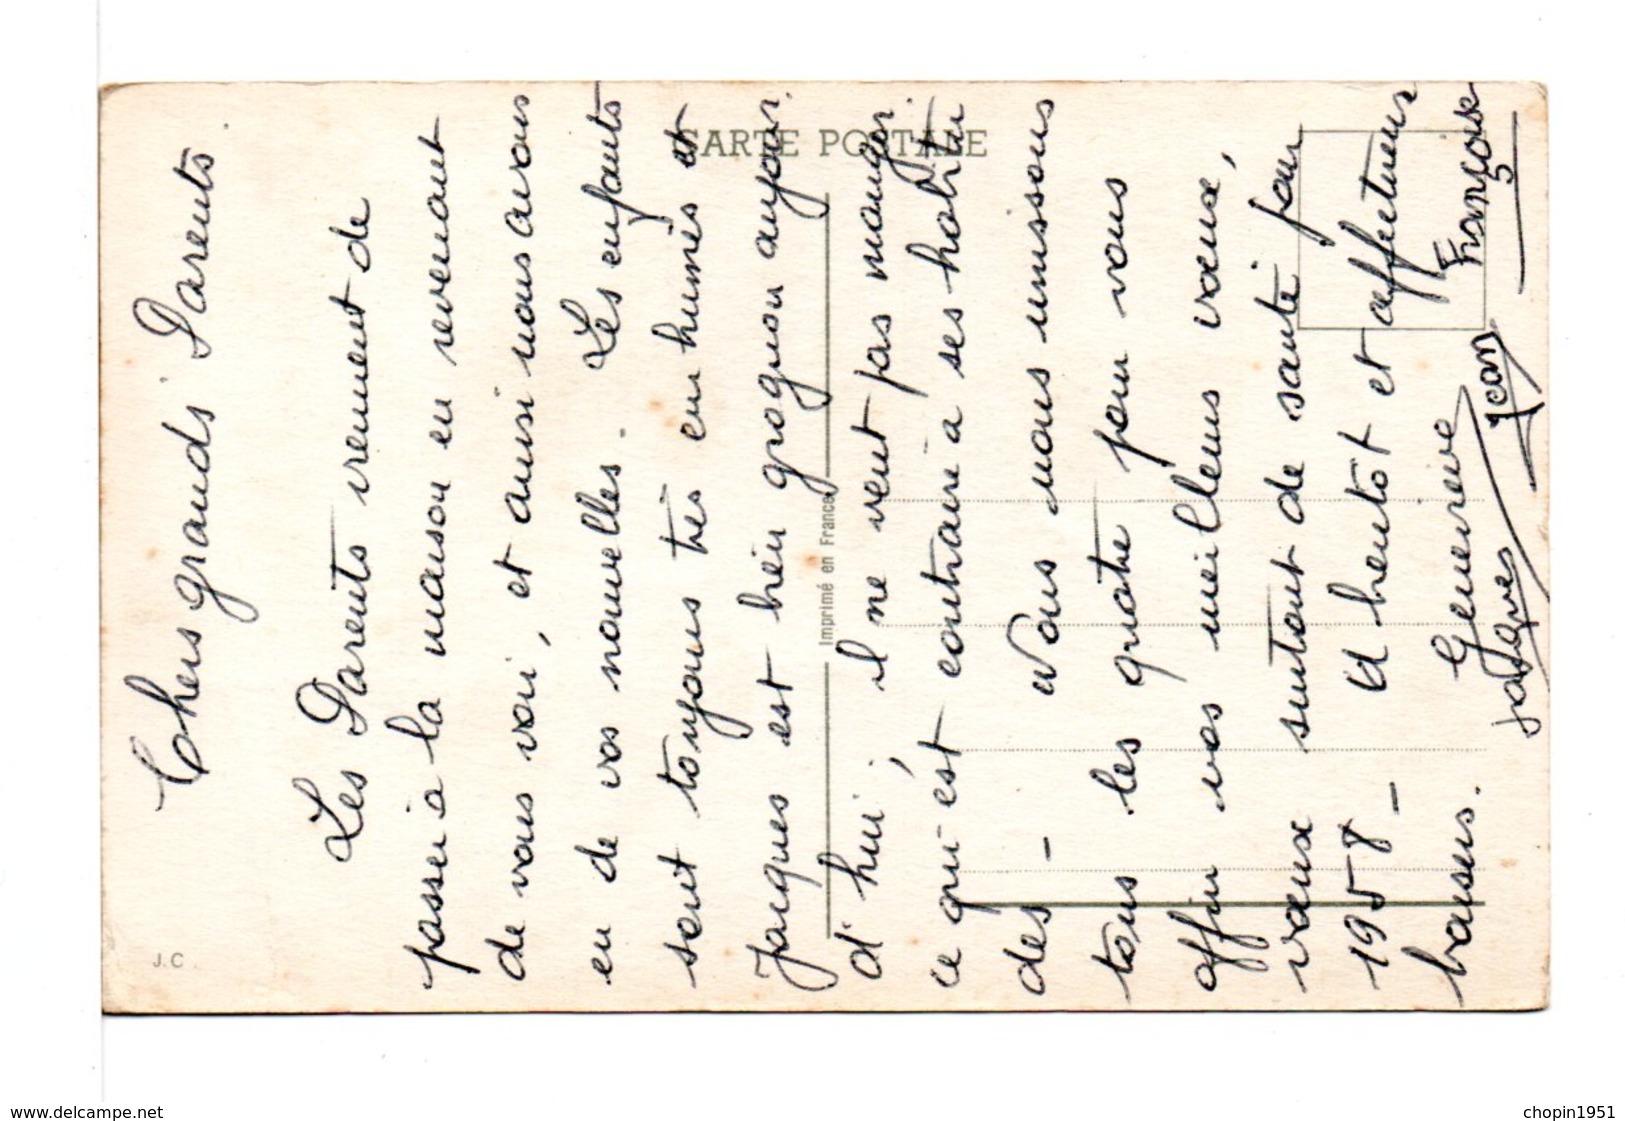 CARTE POSTALE
Imprimé en France
J.C
Chers grands Parents
Les Parents viennent de
passer à la maison en revenant
de vous voir, et ainsi nous avons
eu de vos nouvelles. Les enfants
sont toujours très enrhumés et
Jacques est bien grognon aujour.
d'hui, il ne veut pas manger.
ce qui est contraire à ses habitu
des - Nous nous unissons
tous les quatre pour vous
offrir nos meilleurs vœux,
vœux surtout de santé pour
1958 - A bientôt et affectueux
baisers. Geneviève
Françoise
Jean
Jacques
www.delcampe.net
chopin1951